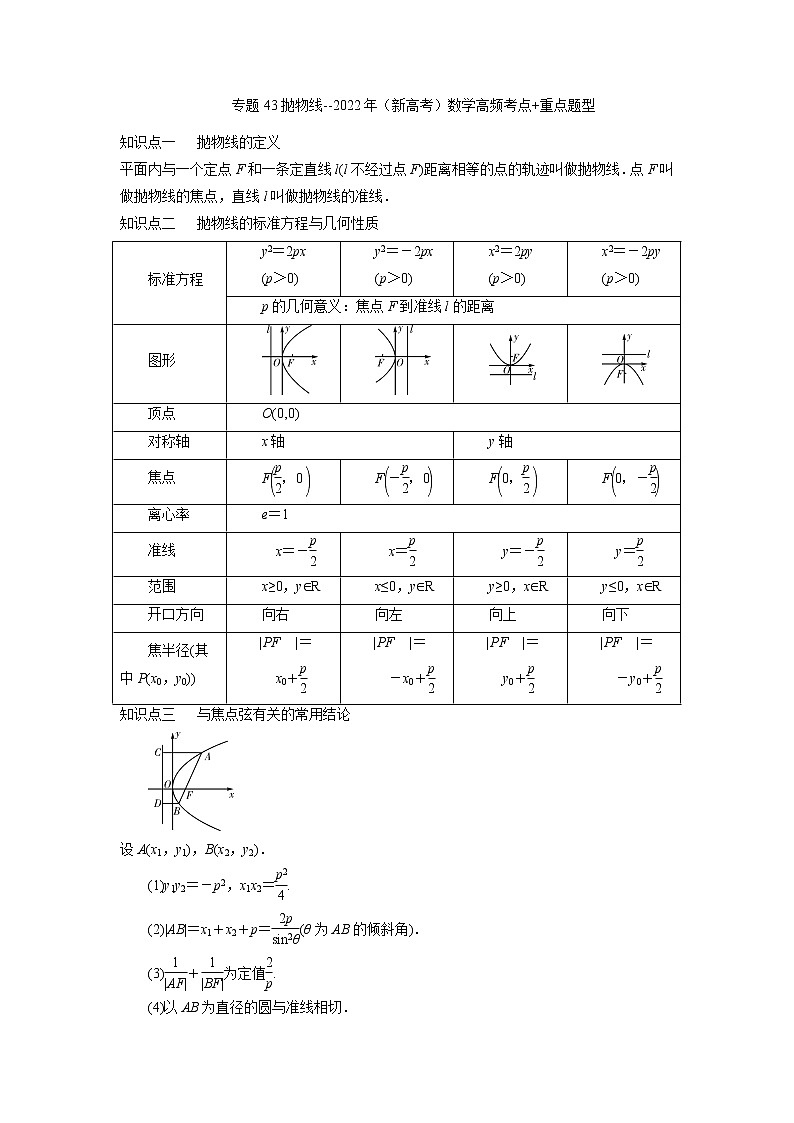 专题 43 抛物线--2022 年（新高考）数学高频考点+重点题型
知识点一 抛物线的定义
平面内与一个定点 F 和一条定直线 l(l 不经过点 F)距离相等的点的轨迹叫做抛物线.点 F 叫
做抛物线的焦点，直线 l 叫做抛物线的准线.
知识点二 抛物线的标准方程与几何性质
标准方程 y2＝2px (p＞0) y2＝－2px (p＞0) x2＝2py (p＞0) x2＝－2py (p＞0)
p 的几何意义：焦点 F 到准线 l 的距离
图形 l y O F x y l F O x y F O x l y O l F x
顶点 O(0,0)
对称轴 x 轴 y 轴
焦点 F(p/2，0) F(－p/2，0) F(0，p/2) F(0，－p/2)
离心率 e＝1
准线 x＝－p/2 x＝p/2 y＝－p/2 y＝p/2
范围 x≥0，y∈R x≤0，y∈R y≥0，x∈R y≤0，x∈R
开口方向 向右 向左 向上 向下
焦半径(其
中 P(x0，y0)) |PF |＝ x0＋p/2 |PF |＝ －x0＋p/2 |PF |＝ y0＋p/2 |PF |＝ －y0＋p/2
知识点三 与焦点弦有关的常用结论
y
C A
O F x
D B
设 A(x1，y1)，B(x2，y2).
(1)y1y2＝－p2，x1x2＝p2/4.
(2)|AB|＝x1＋x2＋p＝2p/sin2θ(θ 为 AB 的倾斜角).
(3)1/|AF|＋1/|BF|为定值2/p.
(4)以 AB 为直径的圆与准线相切.